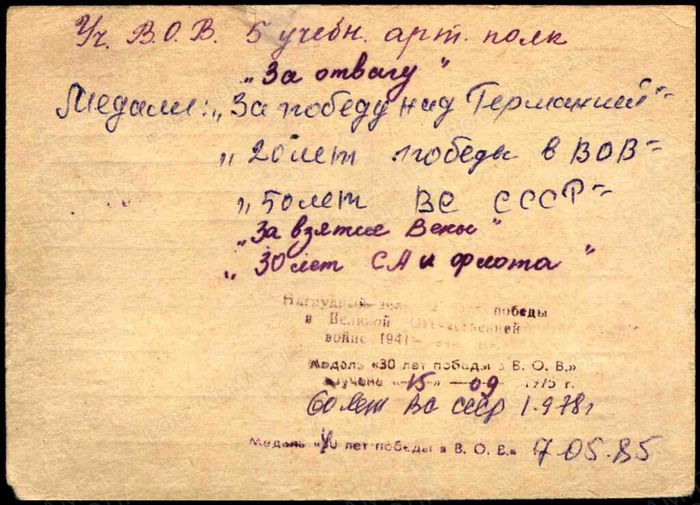 Уч. В.О.В. 5 учебн. арт. полк
„За отвагу"
Медали: „За победу над Германией"
„20 лет победы в ВОВ"
„50 лет ВС СССР"
„За взятие Вены"
„30 лет СА и флота"
Нагрудный победы
в Великой Отечественной
войне 1941
Медаль «30 лет победы в В. О. В.»
вручена «15» — 09 1975 г.
60 лет ВС СССР 1.978г
Медаль «40 лет победы в В. О. В.» 7.05.85